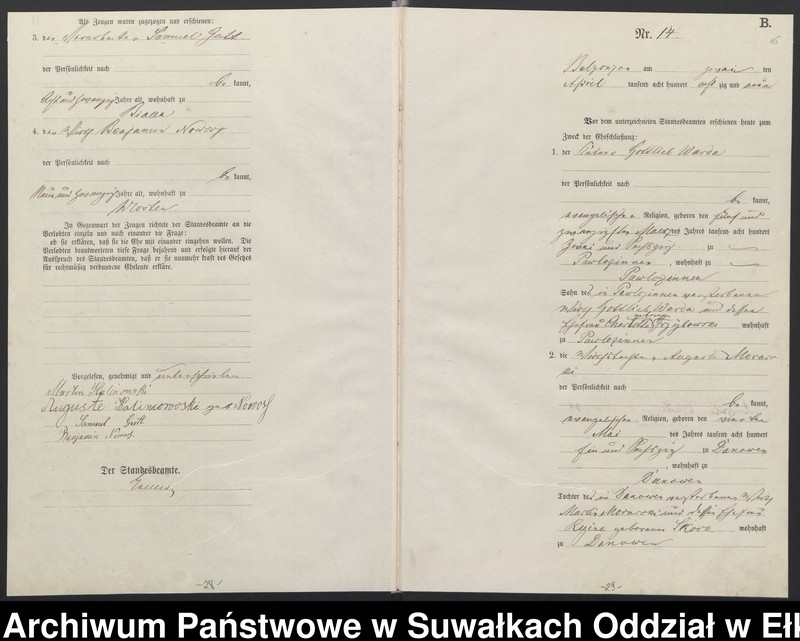 Als Zeugen waren zugezogen und erschienen:
3. der Samuel Gutt
der Persönlichkeit nach
be kannt,
Jahre alt, wohnhaft zu
Bialla
4. der Wirth Benjamin Nowosz
der Persönlichkeit nach
be kannt,
Neun und zwanzig Jahre alt, wohnhaft zu
In Gegenwart der Zeugen richtete der Standesbeamte an die
Verlobten einzeln und nach einander die Frage:
ob sie erklären, daß sie die Ehe mit einander eingehen wollen. Die
Verlobten beantworteten diese Frage bejahend und erfolgte hierauf der
Ausspruch des Standesbeamten, daß er sie nunmehr kraft des Gesetzes
für rechtmäßig verbundene Eheleute erkläre.
Vorgelesen, genehmigt und unterschrieben
Martin Kalinowski
Auguste Kalinowski geb Nowosz
Samuel Gutt
Benjamin Nowosz
Der Standesbeamte.
-28-
B.
Nr. 14.
am zwei den
April tausend acht hundert acht zig und neun
Vor dem unterzeichneten Standesbeamten erschienen heute zum
Zweck der Eheschließung:
1. der Gottlieb Warda
der Persönlichkeit nach
be kannt,
evangelischer Religion, geboren den fünf und
zwanzigsten März des Jahres tausend acht hundert
zwei und sechszig zu
Pawlozinnen, wohnhaft zu
Pawlozinnen
Sohn des in Pawlozinnen verstorbenen
Wirth Gottlieb Warda und dessen
Ehefrau Charlotte geborene wohnhaft
zu Pawlozinnen
2. die Wirthstochter Auguste
der Persönlichkeit nach
be kannt,
evangelischer Religion, geboren den
Mai des Jahres tausend acht hundert
ein und sechszig zu Danowen
, wohnhaft zu
Danowen
Tochter des in Danowen verstorbenen Wirth
Martin und dessen Ehefrau
Regine geborenen Skora wohnhaft
zu Danowen
-29-
Archiwum Państwowe w Suwałkach Oddział w Eł